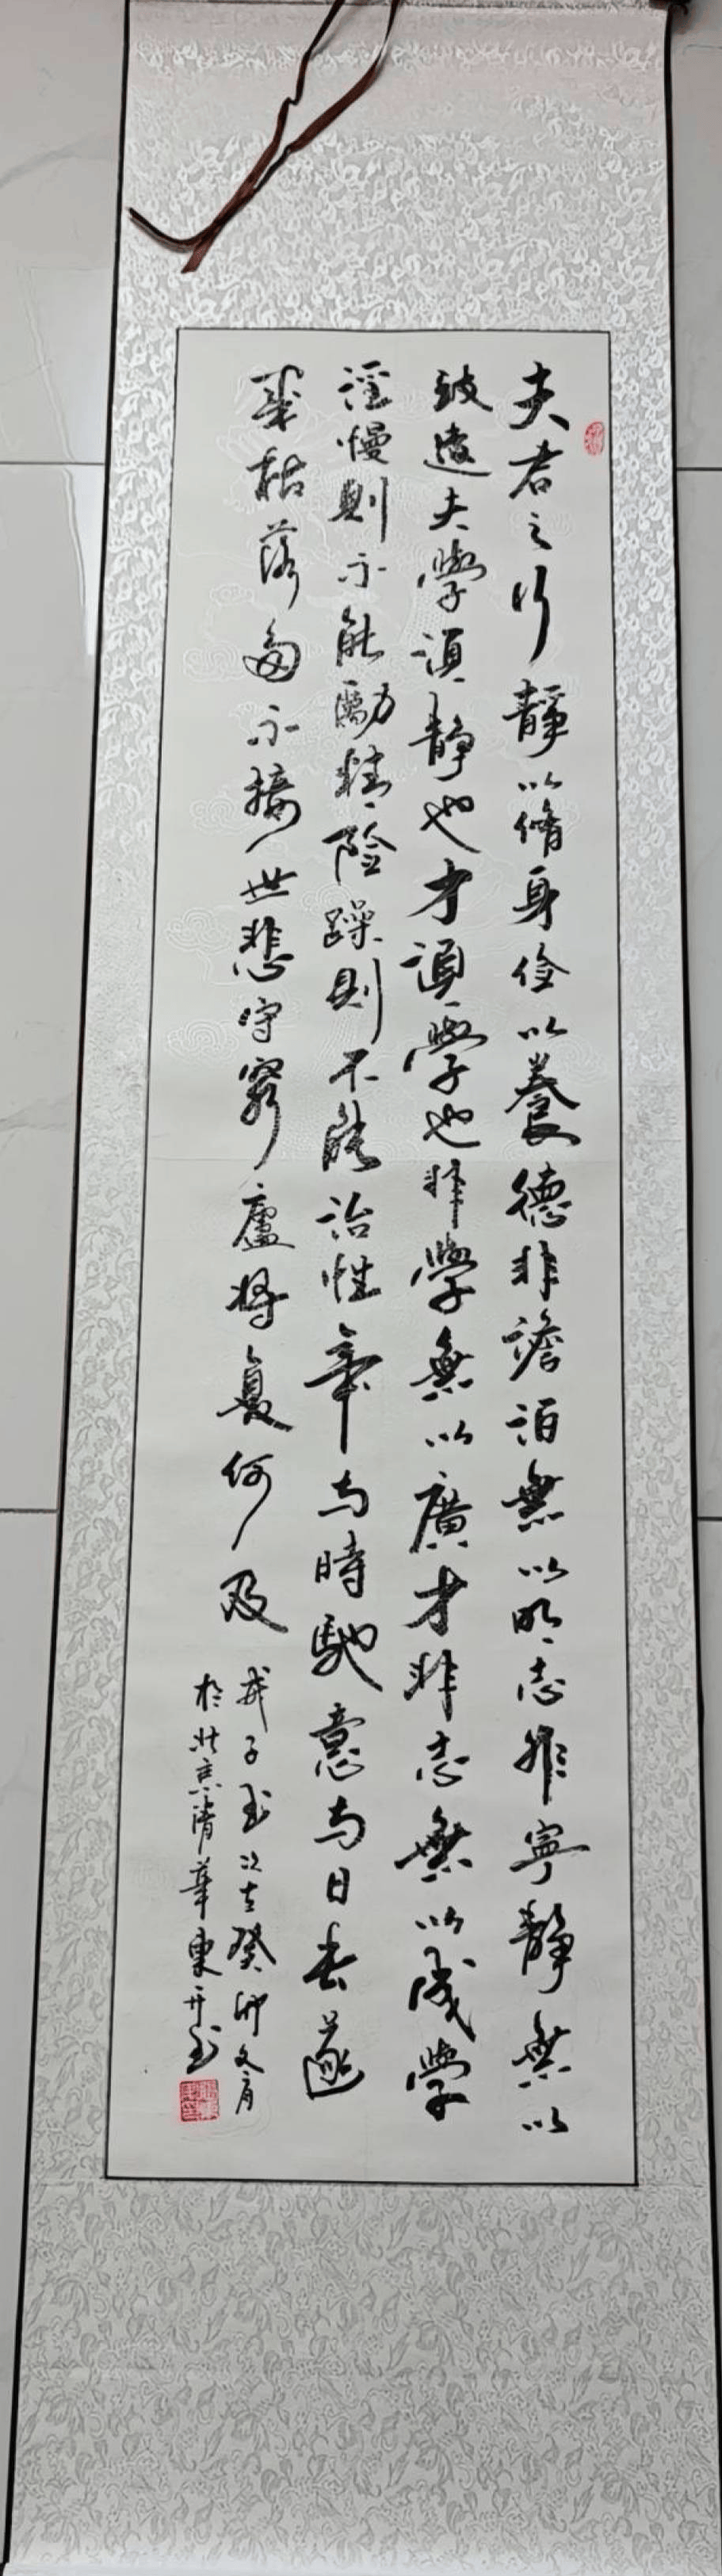 夫君之行靜以脩身俭以養德非澹泊無以明志非寧靜無以
致遠夫學須靜也才須學也非學無以廣才非志無以成學
淫慢則不能勵精险躁則不能治性年与時馳意与日去遂
成枯落多不接世悲守窮廬将复何及
戒子书次在癸卯
於北京清華東升书